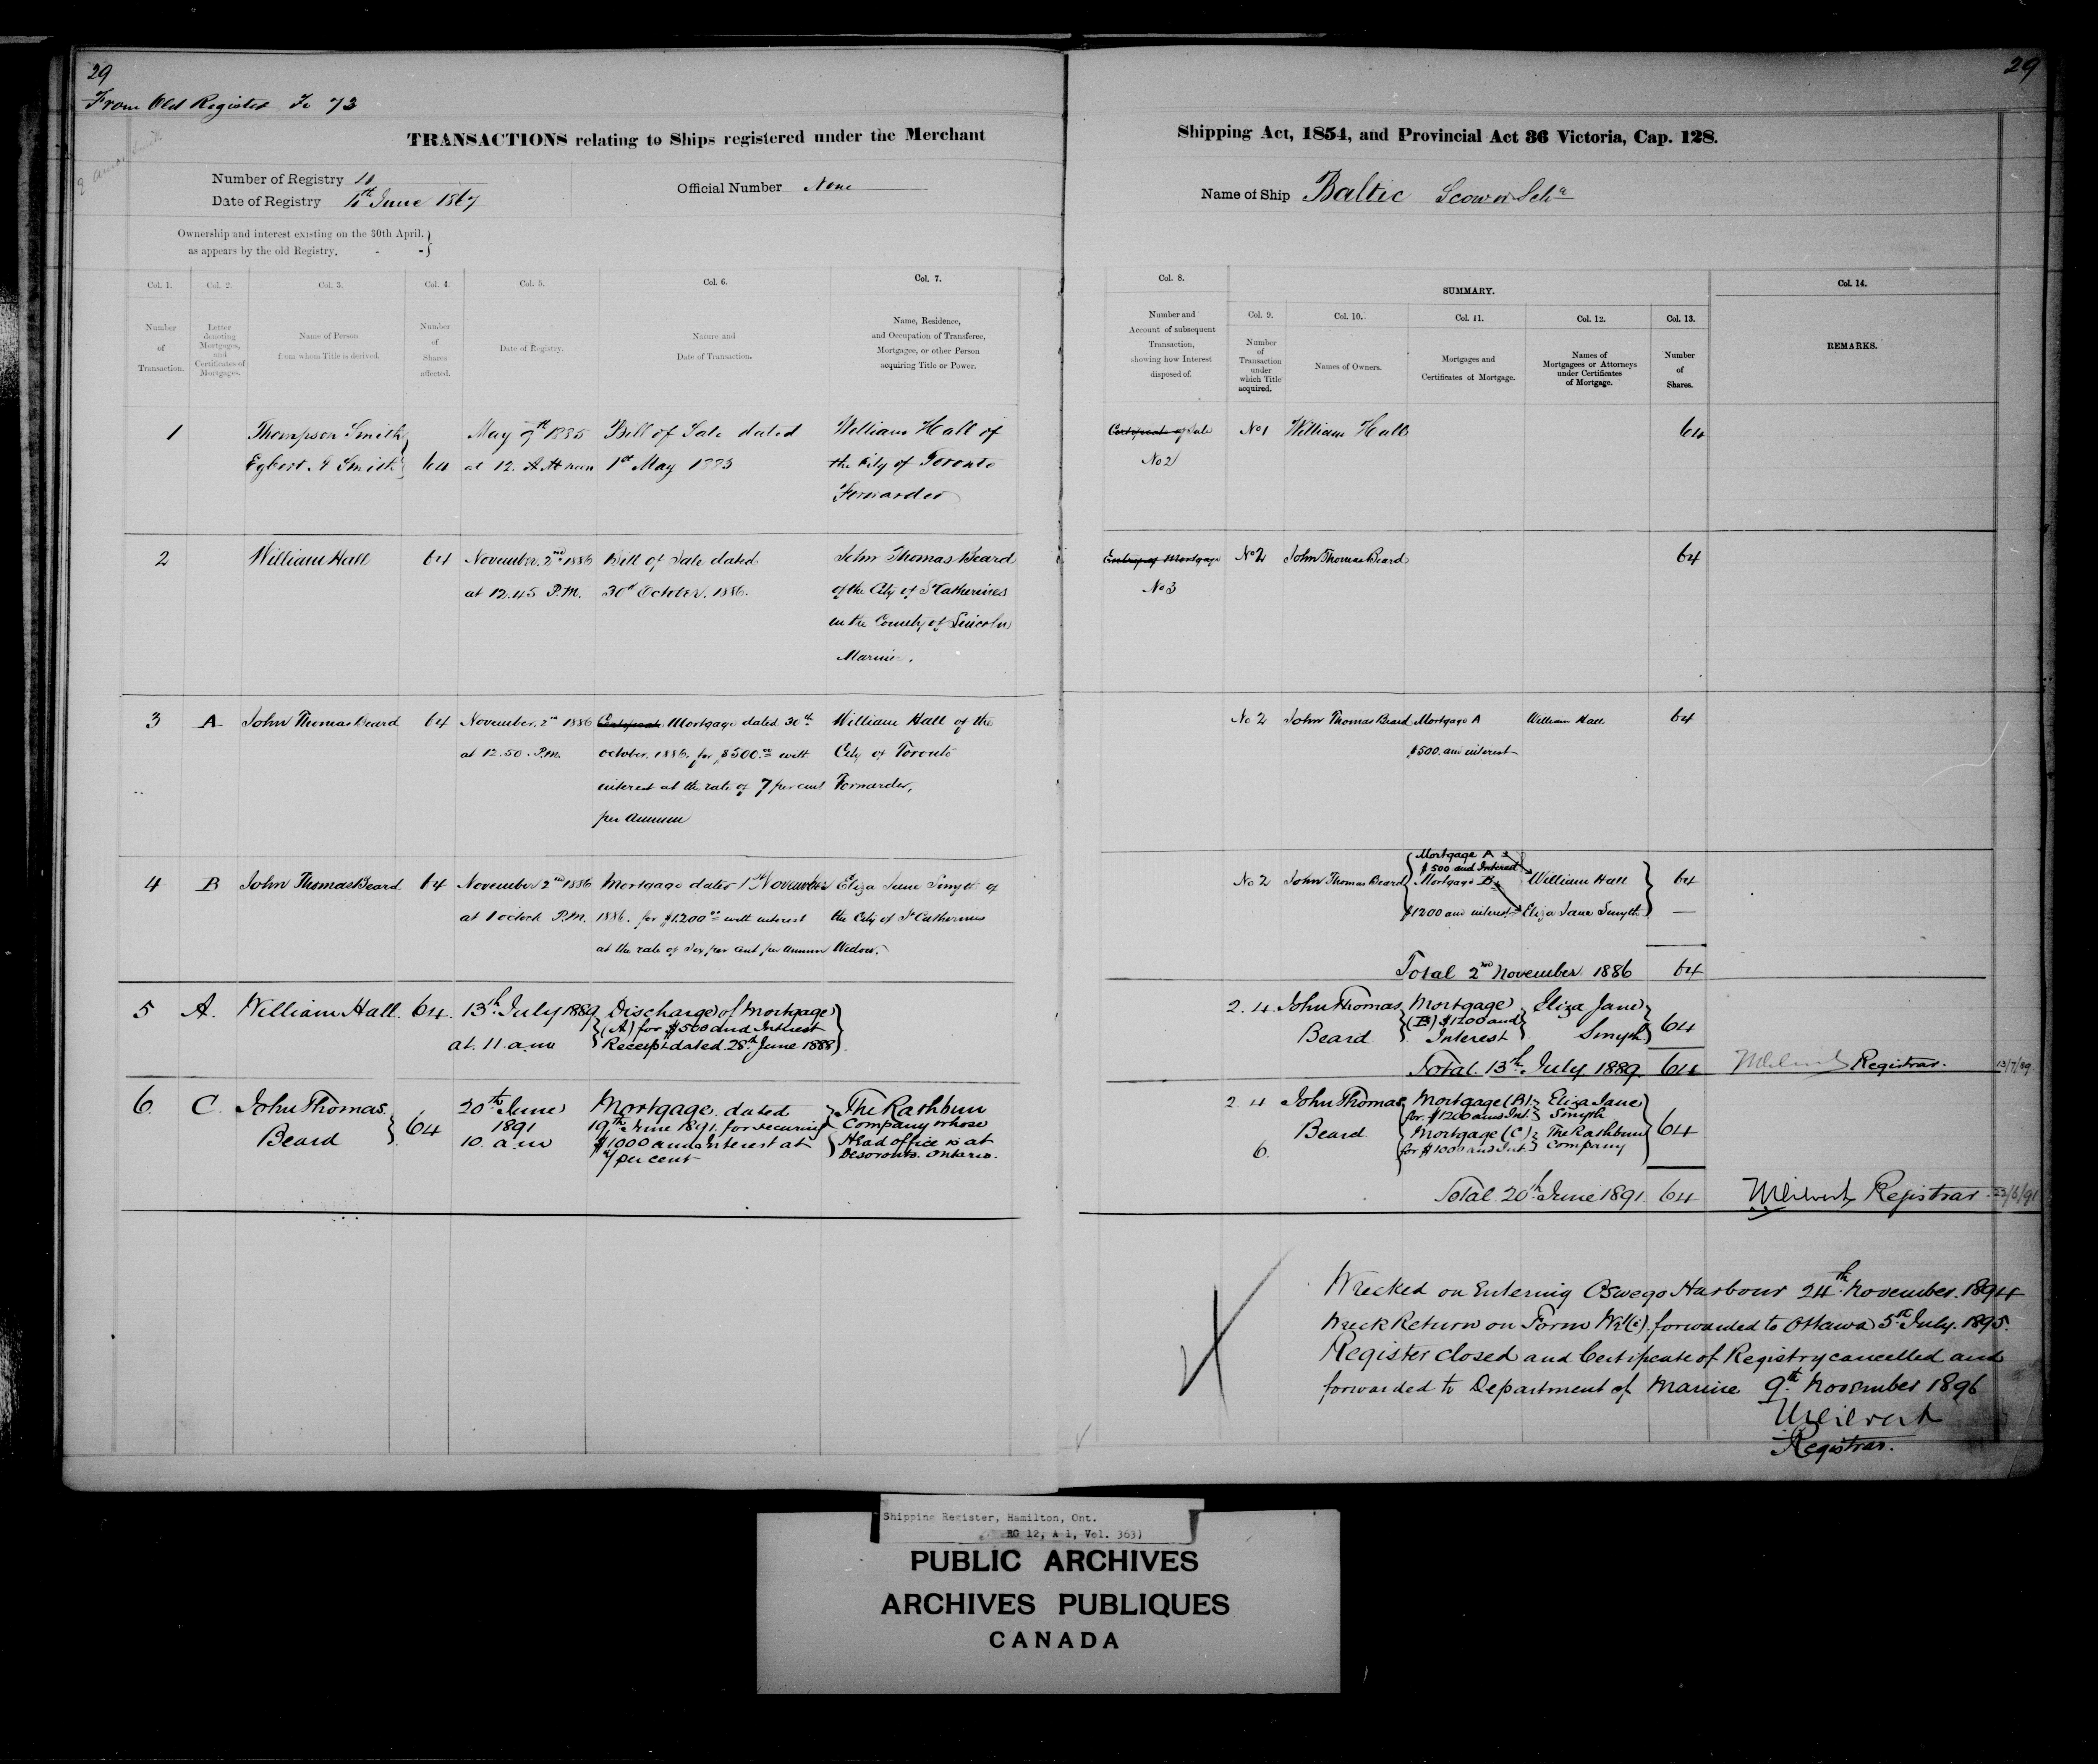 29
From Old Register Fo 73
TRANSACTIONS relating to Ships registered under the Merchant
Number of Registry 10
Date of Registry 10th June 1867
Official Number None
Ownership and interest existing on the 30th April.
as appears by the old Registry. - -
Col. 1.
Number
of
Transaction.
Col. 2.
Letter
denoting
Mortgages,
and
Certificates of
Mortgages.
Col. 3.
Name of Person
from whom Title is derived.
Col. 4.
Number
of
Shares
affected.
Col. 5.
Date of Registry.
Col. 6.
Nature and
Date of Transaction.
Col. 7.
Name, Residence,
and Occupation of Transferee,
Mortgagee, or other Person
acquiring Title or Power.
1
Thompson Smith
Egbert Smith
64
May 9th 1885
at 12.
Bill of Sale dated
1st May 1885
William Hall of
the City of Toronto
Forwarder
2
William Hall
64
November 2nd 1886
at 12.45 P.M.
Bill of Sale dated
30th October. 1886.
John Thomas Beard
of the City of St Catherines
in the County of Lincoln
Mariner.
3
A
John Thomas Beard
64
November. 2nd 1886
at 12.50. P.M.
Certificate Mortgage dated 30th
October. 1886. for $500.00 with
interest at the rate of 7 per cent
per annum
William Hall of the
City of Toronto
Forwarder,
4
B
John Thomas Beard
64
November 2nd 1886
at 1 oclock P.M.
Mortgage dated 1st November
1886. for $1200.00 with interest
at the rate of Six per cent per annum
Eliza Jane Smyth of
the City of St Catherines
Widow.
5
A.
William Hall.
64.
13th July 1889
at. 11. a.m
Discharge of Mortgage
(A) for $500 and Interest
Receipt dated 28th June 1888
6.
C.
John Thomas
Beard
64
20th June
1891
10. a.m
Mortgage. dated
19th June 1891. for securing
$1000 and Interest at
7 per cent
The Rathbun
Company whose
Head office is at
Desoronto. Ontario.
29
Shipping Act, 1854, and Provincial Act 36 Victoria, Cap. 128.
Name of Ship Baltic Scow or Schr
Col. 8.
Number and
Account of subsequent
Transaction,
showing how Interest
disposed of.
SUMMARY.
Col. 9.
Number
of
Transaction
under
which Title
acquired.
Col. 10.
Names of Owners.
Col. 11.
Mortgages and
Certificates of Mortgage.
Col. 12.
Names of
Mortgagees or Attorneys
under Certificates
of Mortgage.
Col. 13.
Number
of
Shares.
Col. 14.
REMARKS.
Certificate of Sale
No 2
No 1
William Hall
64
Entry of Mortgage
No 3
No 2
John Thomas Beard
64
No 2
John Thomas Beard
Mortgage A
$500. and interest
William Hall
64
No 2
John Thomas Beard
Mortgage A
$500 and Interest
Mortgage B
$1200 and interest
William Hall
Eliza Jane Smyth
64
—
Total 2nd November 1886 64
2. 4
John Thomas
Beard
Mortgage
(B) $1200 and
Interest
Eliza Jane
Smyth
64
Total. 13th July 1889 64
Registrar. 13/7/89
2 4
6.
John Thomas
Beard
Mortgage (B)
for $1200 and Int.
Mortgage (C)
for $1000 and Int.
Eliza Jane
Smyth
The Rathbun
Company
64
Total. 20th June 1891. 64
Registrar
Wrecked on Entering Oswego Harbour 24th November. 1894
Wreck Return on Form forwarded to Ottawa 5th July. 1895.
Register closed and Certificate of Registry cancelled and
forwarded to Department of Marine 9th November 1896
Registrar.
Shipping Register, Hamilton, Ont.
RG 12, A 1, Vol. 363)
PUBLIC ARCHIVES
ARCHIVES PUBLIQUES
CANADA